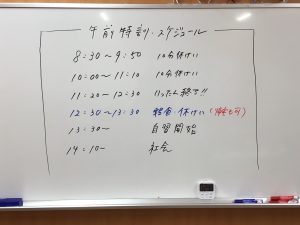 午前特訓・スケジュール
8:30〜9:50 10分休けい
10:00〜11:10 10分休けい
11:20〜12:30 いったん終了!!
12:30〜13:30 昼食・休けい(帰宅も可)
13:30〜 自習開始
14:10〜 社会